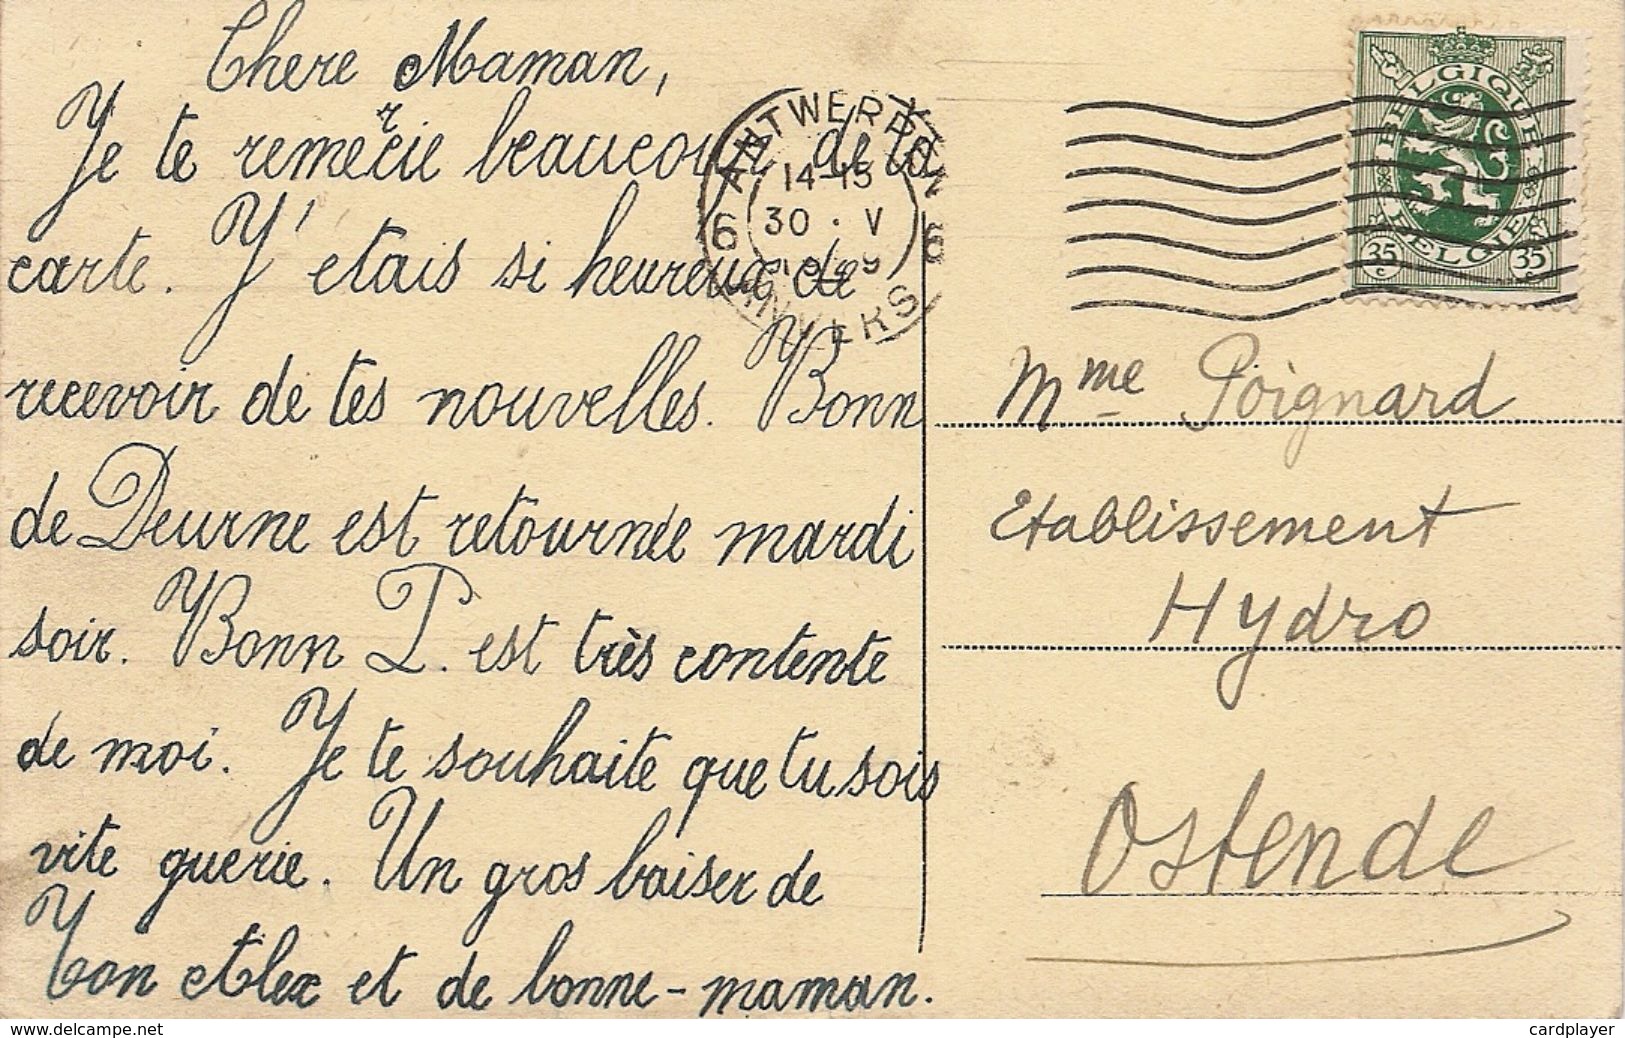 Chere Maman,
Je te remercie beaucoup de ta
carte. J'etais si heureux de
recevoir de tes nouvelles. Bonn
de Deurne est retournée mardi
soir. Bonn P. est très contente
de moi. Je te souhaite que tu sois
vite guerie. Un gros baiser de
Ton Alex et de bonne-maman.
ANTWERPEN
14-15
30 · V
6 6
ANVERS
BELGIQUE
BELGIE
35 c 35 c
Mme Poignard
Etablissement
Hydro
Ostende
www.delcampe.net
cardplayer